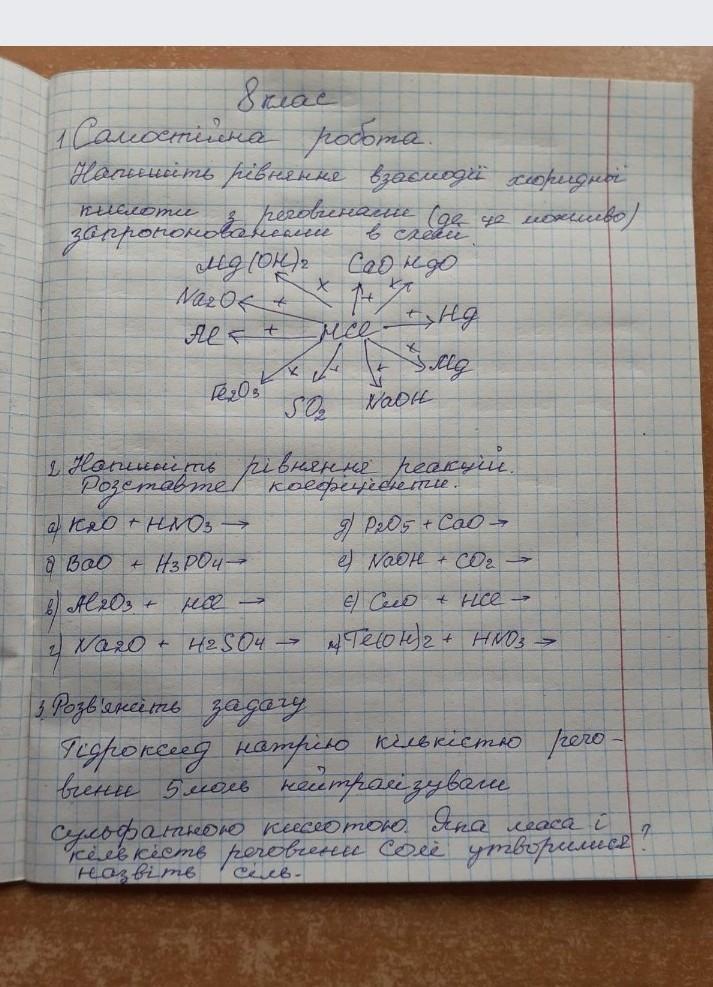 8 клас
1 Самостійна робота.
Напишіть рівняння взаємодії хлоридної
кислоти з речовинами (де це можливо)
запропонованими в схемі.
Mg(OH)2 CaO HgO
x + x
Na2O +
Al + HCl + Hg
x Mg
Fe2O3 x + +
SO2 NaOH
2. Напишіть рівняння реакцій.
Розставте коефіцієнти.
а) K2O + HNO3 → д) P2O5 + CaO →
б) BaO + H3PO4 → е) NaOH + CO2 →
в) Al2O3 + HCl → є) CuO + HCl →
г) Na2O + H2SO4 → ж) Fe(OH)2 + HNO3 →
3. Розв'яжіть задачу
Гідроксид натрію кількістю речо-
вини 5 моль нейтралізували
сульфатною кислотою. Яка маса і
кількість речовини солі утворилися?
назвіть сіль.